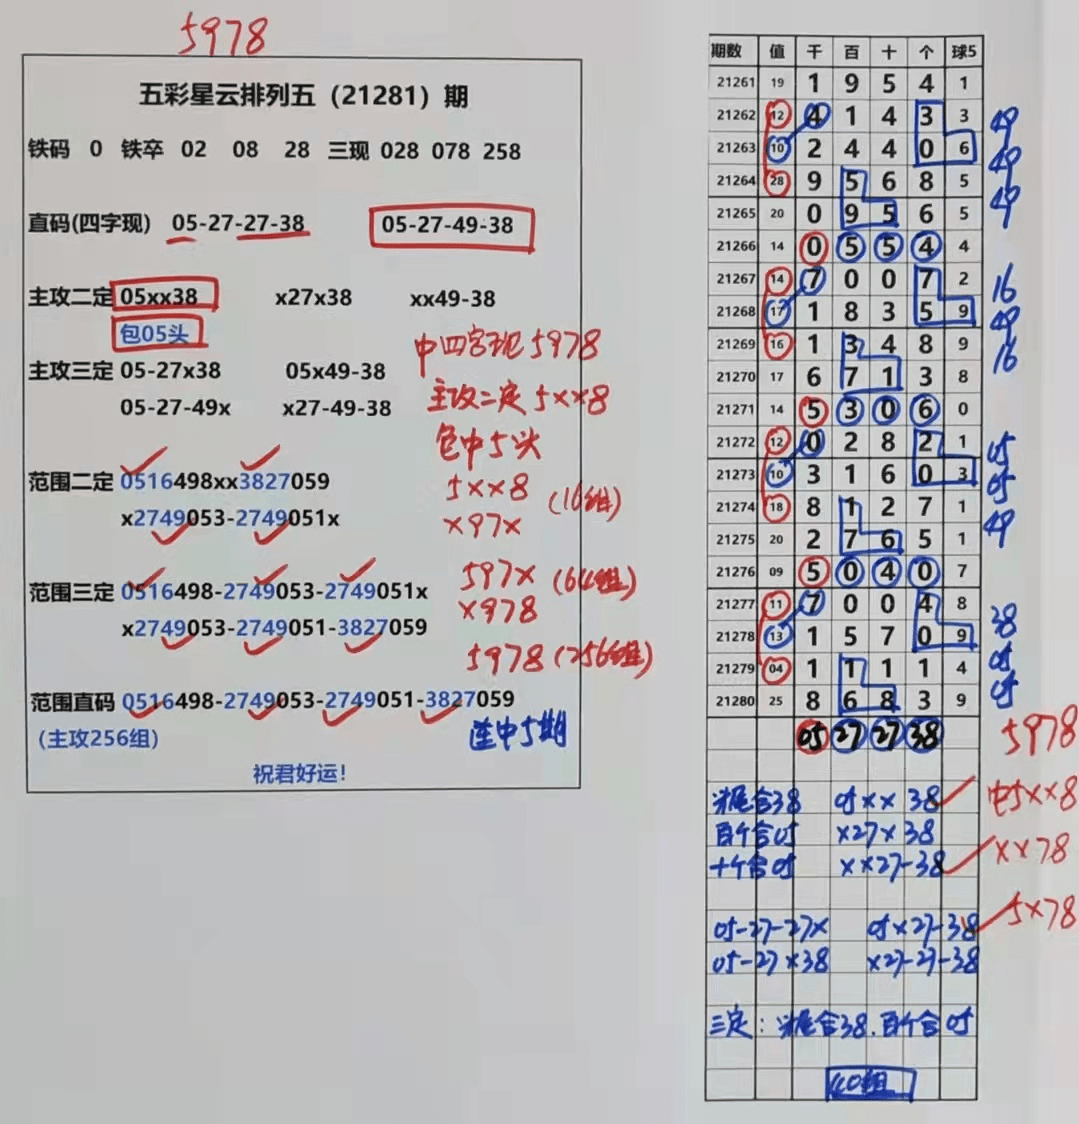 5978
五彩星云排列五（21281）期
铁码 0 铁卒 02 08 28 三现 028 078 258
直码(四字现) 05-27-27-38 05-27-49-38
主攻二定 05xx38 x27x38 xx49-38
包05头
中四字现5978
主攻三定 05-27x38 05x49-38
主攻二定5xx8
05-27-49x x27-49-38
包中5头
范围二定 0516498xx3827059
5xx8 (16组)
x2749053-2749051x
x97x
范围三定 0516498-2749053-2749051x
597x (64组)
x2749053-2749051-3827059
x978
5978(256组)
范围直码 0516498-2749053-2749051-3827059
(主攻256组)
连中5期
祝君好运!
期数 值 千 百 十 个 球5
21261 19 1 9 5 4 1
21262 12 4 1 4 3 3 49
21263 10 2 4 4 0 6 49
21264 28 9 5 6 8 5 49
21265 20 0 9 5 6 5
21266 14 0 5 5 4 4
21267 14 7 0 0 7 2 16
21268 17 1 8 3 5 9 49
21269 16 1 3 4 8 9 16
21270 17 6 7 1 3 8
21271 14 5 3 0 6 0
21272 12 0 2 8 2 1 05
21273 10 3 1 6 0 3 05
21274 18 8 1 2 7 1 49
21275 20 2 7 6 5 1
21276 09 5 0 4 0 7
21277 11 7 0 0 4 8 38
21278 13 1 5 7 0 9 05
21279 04 1 1 1 1 4 05
21280 25 8 6 8 3 9
05 27 27 38 5978
合38 05xx38 中5xx8
百个合05 x27x38
十个合05 xx27-38 xx78
05-27-27x 05x27-38 5x78
05-27x38 x27-27-38
三定: 合38.百个合05
40组